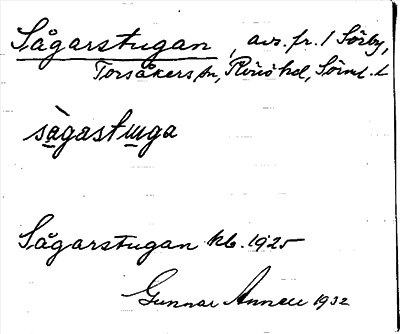 Sågarstugan, avs. fr. 1 Sörby,
Torsåkers sn, Rönö hd, Söml. l
sàgastuga
Sågarstugan kb. 1925
Gunnar Annell 1932